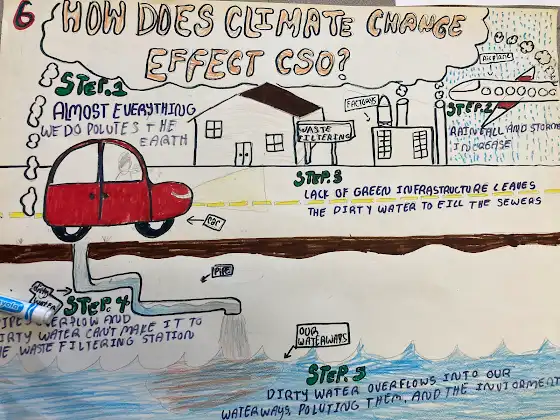 6
HOW DOES CLIMATE CHANGE
EFFECT CSO?
STEP.1
ALMOST EVERYTHING
WE DO POLUTES THE
EARTH
WASTE
FILTERING
FACTORYS
Airplane
STEP.2
RAINFALL AND STORMS
INCREASE
STEP.3
LACK OF GREEN INFRASTRUCTURE LEAVES
THE DIRTY WATER TO FILL THE SEWERS
car
PIPE
dirty
water
STEP.4
PIPES OVERFLOW AND
DIRTY WATER CAN'T MAKE IT TO
THE WASTE FILTERING STATION
OUR
WATERWAYS
STEP.5
DIRTY WATER OVERFLOWS INTO OUR
WATERWAYS, POLUTING THEM, AND THE INVIORMENT